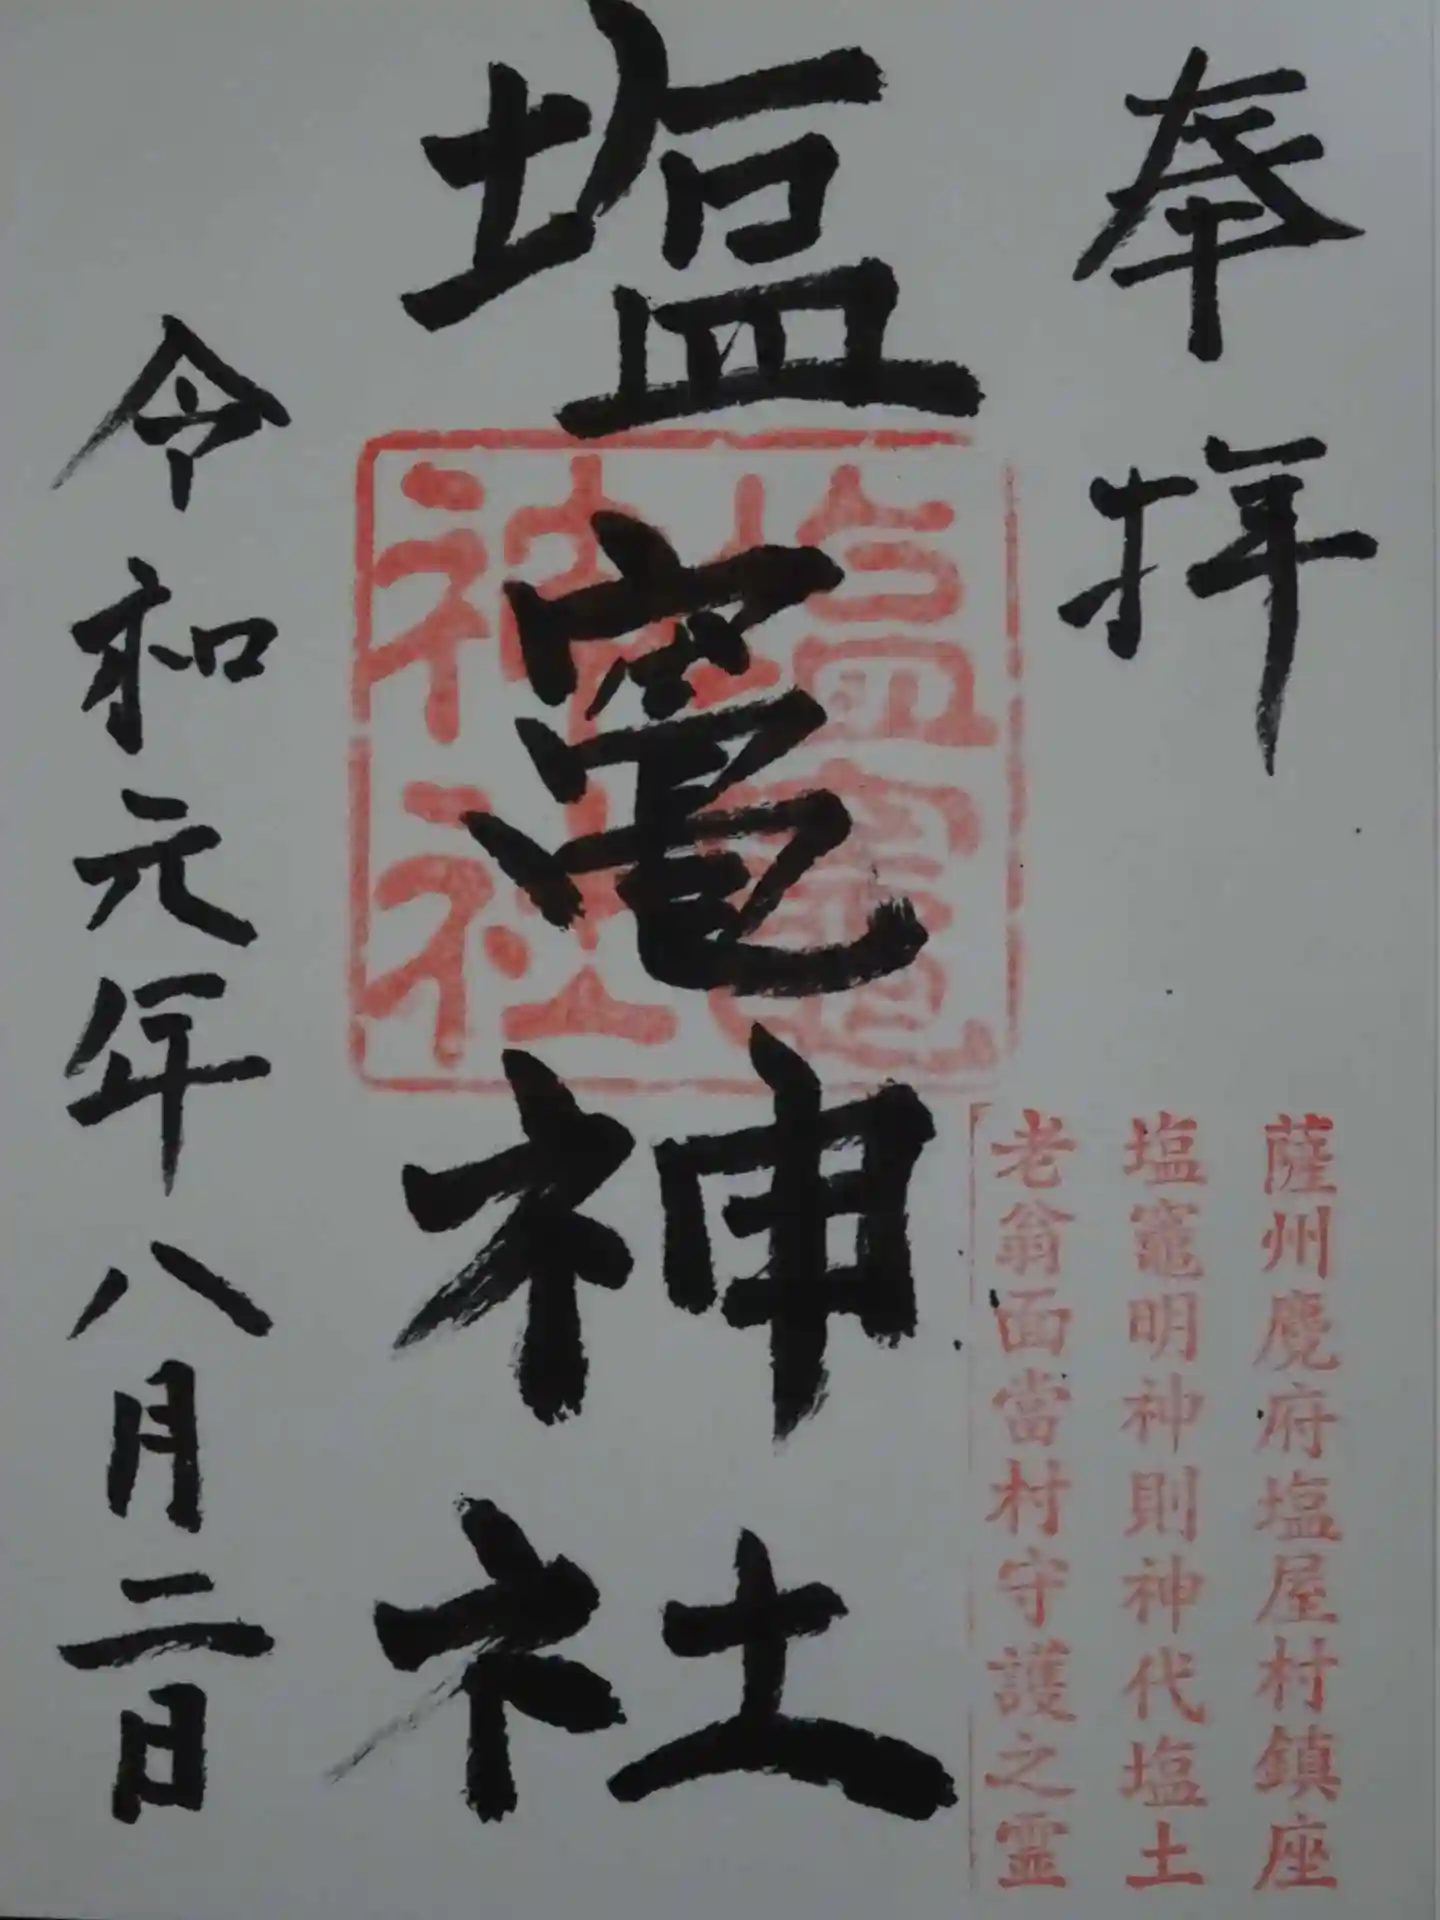 奉拝
薩州麑府塩屋村鎮座
塩竈明神則神代塩土
老翁面當村守護之霊
塩竈神社
塩竈
神社
令和元年八月二日